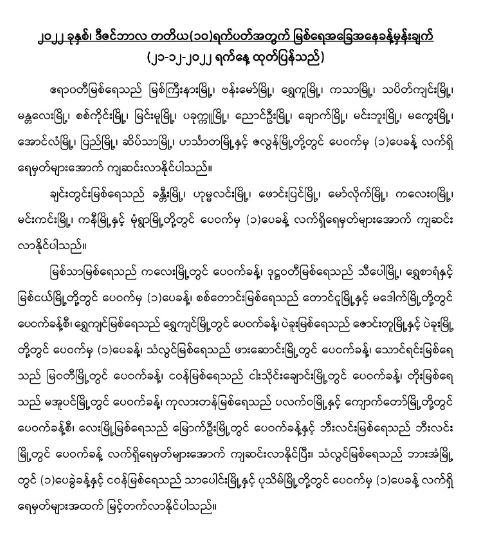 ၂၀၂၂ ခုနှစ်၊ ဒီဇင်ဘာလ တတိယ(၁၀)ရက်ပတ်အတွက် မြစ်ရေအခြေအနေခန့်မှန်းချက်
(၂၁-၁၂-၂၀၂၂ ရက်နေ့ ထုတ်ပြန်သည်)
ဧရာဝတီမြစ်ရေသည် မြစ်ကြီးနားမြို့၊ ဗန်းမော်မြို့၊ ရွှေကူမြို့၊ ကသာမြို့၊ သပိတ်ကျင်းမြို့၊
မန္တလေးမြို့၊ စစ်ကိုင်းမြို့၊ မြင်းမူမြို့၊ ပခုက္ကူမြို့၊ ညောင်ဦးမြို့၊ ချောက်မြို့၊ မင်းဘူးမြို့၊ မကွေးမြို့၊
အောင်လံမြို့၊ ပြည်မြို့၊ ဆိပ်သာမြို့၊ ဟင်္သာတမြို့နှင့် ဇလွန်မြို့တို့တွင် ပေဝက်မှ (၁)ပေခန့် လက်ရှိ
ရေမှတ်များအောက် ကျဆင်းလာနိုင်ပါသည်။
ချင်းတွင်းမြစ်ရေသည် ခန္တီးမြို့၊ ဟုမ္မလင်းမြို့၊ ဖောင်းပြင်မြို့၊ မော်လိုက်မြို့၊ ကလေးဝမြို့၊
မင်းကင်းမြို့၊ ကနီမြို့နှင့် မုံရွာမြို့တို့တွင် ပေဝက်မှ (၁)ပေခန့် လက်ရှိရေမှတ်များအောက် ကျဆင်း
လာနိုင်ပါသည်။
မြစ်သာမြစ်ရေသည် ကလေးမြို့တွင် ပေဝက်ခန့်၊ ဒုဋ္ဌဝတီမြစ်ရေသည် သီပေါမြို့၊ ရွှေစာရံနှင့်
မြစ်ငယ်မြို့တို့တွင် ပေဝက်မှ (၁)ပေခန့်၊ စစ်တောင်းမြစ်ရေသည် တောင်ငူမြို့နှင့် မဒေါက်မြို့တို့တွင်
ပေဝက်ခန့်စီ၊ ရွှေကျင်မြစ်ရေသည် ရွှေကျင်မြို့တွင် ပေဝက်ခန့်၊ ပဲခူးမြစ်ရေသည် ဇောင်းတူမြို့နှင့် ပဲခူးမြို့
တို့တွင် ပေဝက်မှ (၁)ပေခန့်၊ သံလွင်မြစ်ရေသည် ဖားဆောင်းမြို့တွင် ပေဝက်ခန့်၊ သောင်ရင်းမြစ်ရေ
သည် မြဝတီမြို့တွင် ပေဝက်ခန့်၊ ငဝန်မြစ်ရေသည် ငါးသိုင်းချောင်းမြို့တွင် ပေဝက်ခန့်၊ တိုးမြစ်ရေ
သည် မအူပင်မြို့တွင် ပေဝက်ခန့်၊ ကုလားတန်မြစ်ရေသည် ပလက်ဝမြို့နှင့် ကျောက်တော်မြို့တို့တွင်
ပေဝက်ခန့်စီ၊ လေးမြို့မြစ်ရေသည် မြောက်ဦးမြို့တွင် ပေဝက်ခန့်နှင့် ဘီးလင်းမြစ်ရေသည် ဘီးလင်း
မြို့တွင် ပေဝက်ခန့် လက်ရှိရေမှတ်များအောက် ကျဆင်းလာနိုင်ပြီး၊ သံလွင်မြစ်ရေသည် ဘားအံမြို့
တွင် (၁)ပေခွဲခန့်နှင့် ငဝန်မြစ်ရေသည် သာပေါင်းမြို့နှင့် ပုသိမ်မြို့တို့တွင် ပေဝက်မှ (၁)ပေခန့် လက်ရှိ
ရေမှတ်များအထက် မြင့်တက်လာနိုင်ပါသည်။